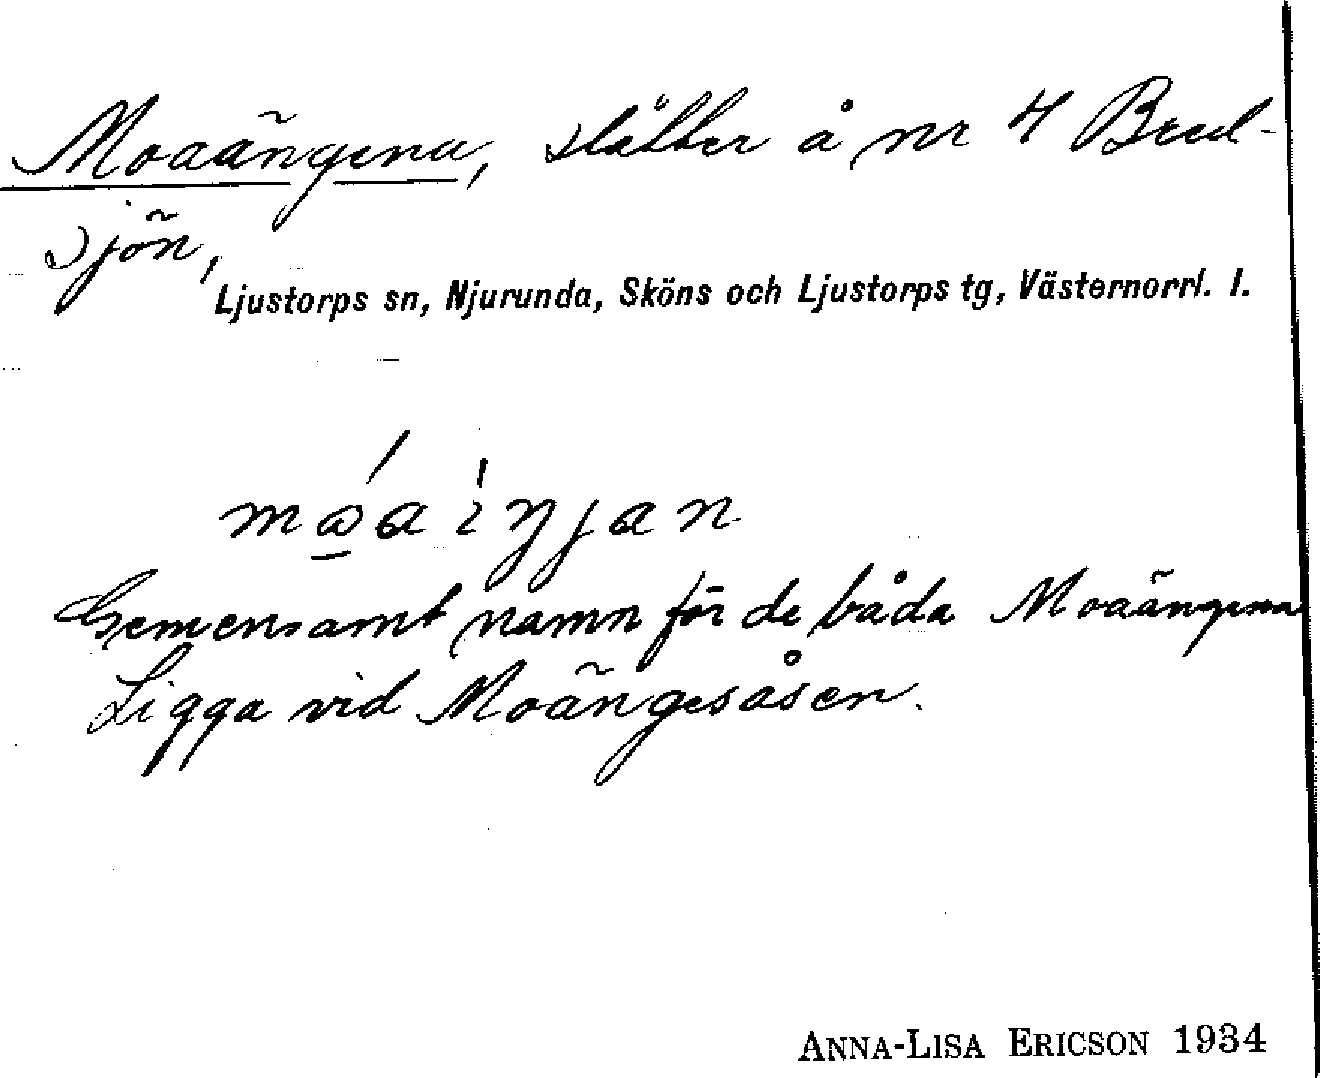 Moaängena, slåtter å nr 4 Bred-
sjön,
Ljustorps sn, Njurunda, Sköns och Ljustorps tg, Västernorrl. l.
Gemensamt namn för de båda Moaängena
Ligga vid Moängesåsen.
ANNA-LISA ERICSON 1934